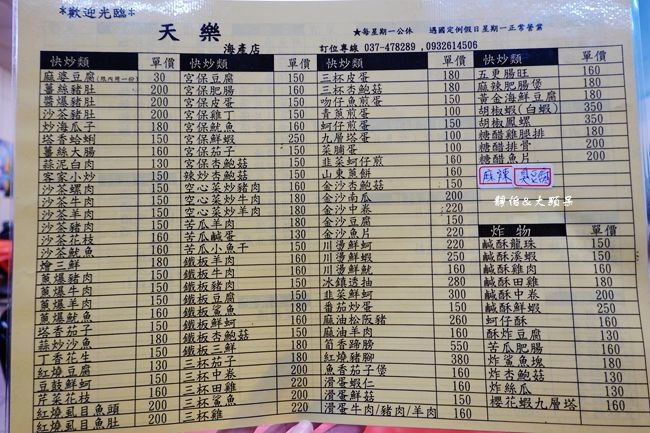 *歡迎光臨*
天樂
海產店
★每星期一公休 遇國定例假日星期一正常營業
訂位專線 037-478289,0932614506
快炒類 單價
麻婆豆腐(限內用一份) 30
薑絲豬肚 200
醬爆豬肚 200
沙茶豬肚 200
炒海瓜子
塔香蛤蜊
薑絲大腸
蒜泥白肉
客家小炒 150
沙茶螺肉 150
沙茶牛肉 150
沙茶羊肉 150
沙茶豬肉 150
沙茶花枝
燴三鮮
蔥爆豬肉 150
蔥爆牛肉 150
蔥爆羊肉 150
蔥爆魷魚
塔香茄子
蒜炒沙魚
丁香花生
紅燒豆腐
豆鼓鮮蚵
芹菜花枝
紅燒虱目魚頭 200
紅燒虱目魚肚 200
快炒類 單價
宮保豆腐 150
宮保肥腸 160
宮保皮蛋 150
宮保雞丁 150
宮保魷魚
宮保鮮蝦
宮保茄子
宮保杏鮑菇
辣炒杏鮑菇 150
空心菜炒豬肉 150
空心菜炒牛肉
空心菜炒羊肉
苦瓜羊肉
苦瓜鹹蛋
苦瓜小魚干
鐵板羊肉
鐵板牛肉
鐵板豬肉
鐵板豆腐
鐵板鯊魚
鐵板鮮蚵
鐵板杏鮑菇
鐵板三鮮
三杯茄子
三杯中卷 200
三杯田雞
三杯鯊魚
三杯雞 220
快炒類 單價
三杯皮蛋 180
三杯杏鮑菇 180
吻仔魚煎蛋 150
青蔥煎蛋 100
蚵仔煎蛋 150
九層塔蛋 100
菜脯蛋 100
韭菜蚵仔煎 160
山東蔥餅 160
金沙杏鮑菇
金沙南瓜
金沙中卷 220
金沙豆腐 150
金沙魚片
川燙鮮蚵
川燙鮮蝦
川燙鮮魷 160
冰鎮透抽
韭菜鮮蚵
番茄炒蛋
麻油松阪豬 260
麻油羊肉 160
筍香蹄膀 550
紅燒豬腳 380
魚香茄子煲
滑蛋蝦仁
滑蛋鮮菇
滑蛋牛肉/豬肉/羊肉 160
快炒類 單價
五更腸旺 160
麻辣肥腸煲 180
黃金海鮮豆腐 200
胡椒蝦(白蝦) 350
胡椒鳳螺 350
糖醋雞腿排 180
糖醋排骨 200
糖醋魚片 200
麻辣 臭豆腐
靜怡&大顆呆
炸物 單價
鹹酥龍珠 150
鹹酥溪蝦 150
鹹酥雞肉 160
鹹酥田雞 180
鹹酥中卷 200
鹹酥鮮蝦 150
蚵仔酥 160
酥炸豆腐 130
苦瓜肥腸 160
炸鯊魚塊 180
炸杏鮑菇 160
炸絲瓜 130
櫻花蝦九層塔 160